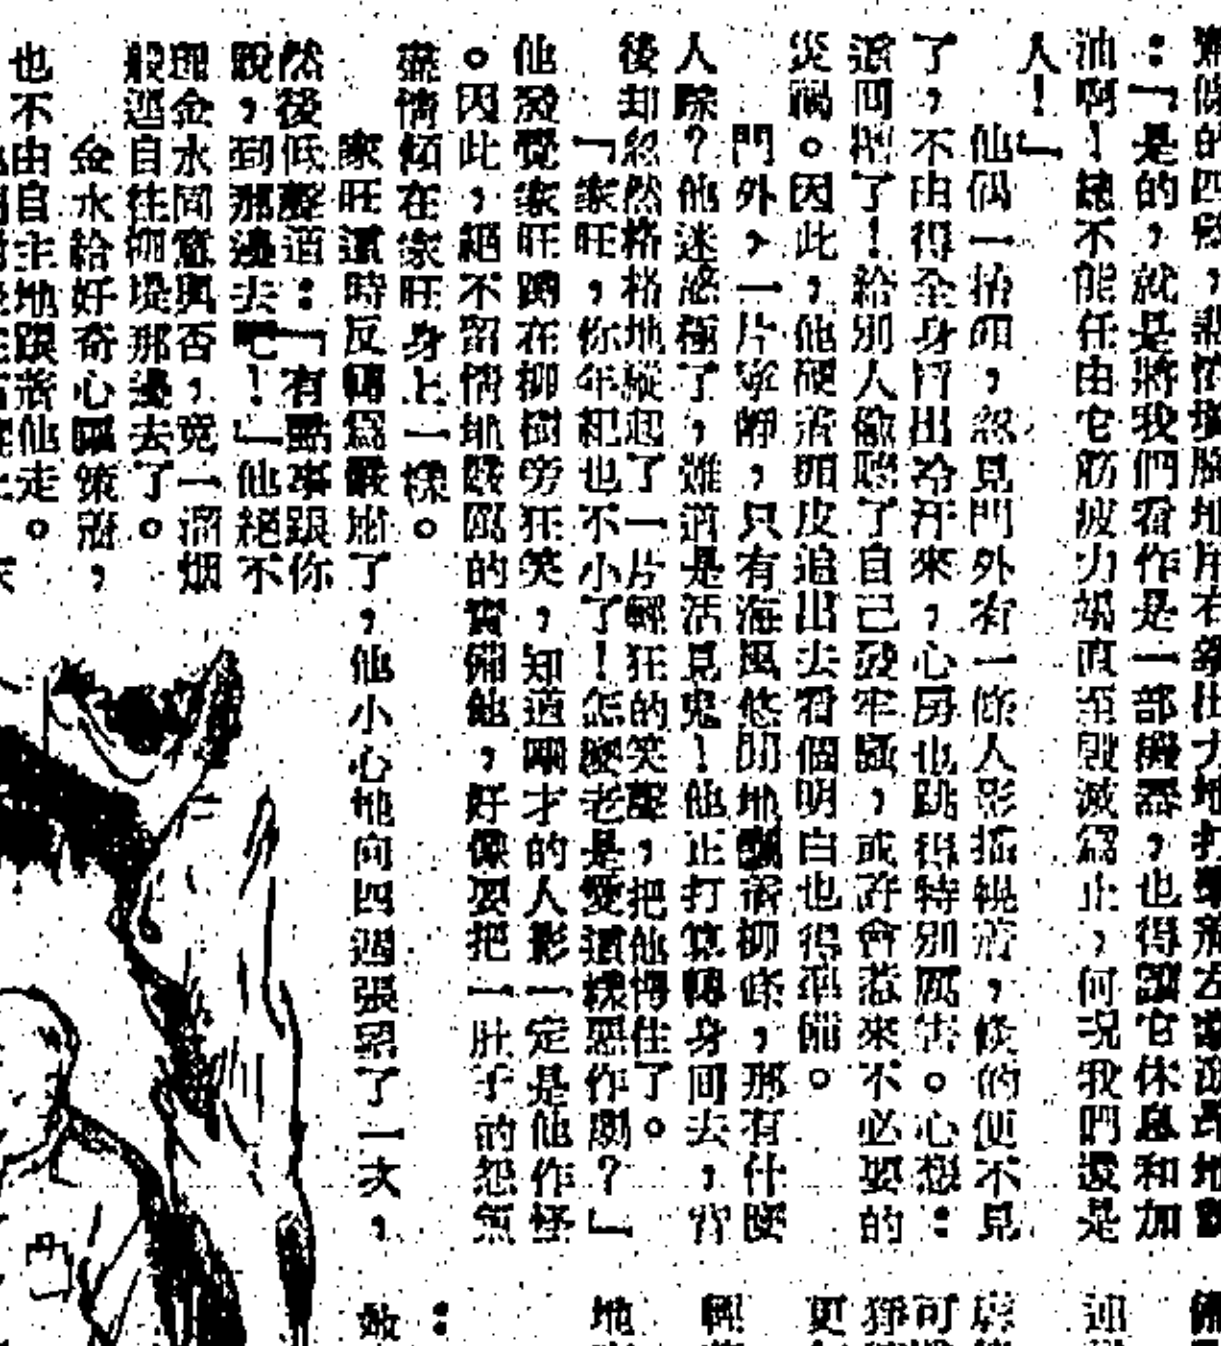 ：「是的，就是將我們看作是一部機器，也得讓它休息和加
油啊！總不能任由它筋疲力竭直至毀滅爲止，何況我們還是
人！」
他偶一抬頭，忽見門外有一條人影搖幌着，倏的便不見
了，不由得全身冒出冷汗來，心房也跳得特別厲害。心想：
這回糟了！給別人偸聽了自己發牢騷，或許會惹來不必要的
災禍。因此，他硬着頭皮追出去看個明白也得準備。
門外，一片寧靜，只有海風悠閒地飄着柳條，那有什麼
人踪？他迷惑極了，難道是活見鬼！他正打算轉身回去，背
後却忽然格格地縱起了一片輕狂的笑聲，把他愕住了。
「家旺，你年紀也不小了！怎麼老是愛這樣惡作劇？」
他發覺家旺蹲在柳樹旁狂笑，知道剛才的人影一定是他作怪
。因此，絕不留情地嚴厲的責備他，好像要把一肚子的怨氣
盡情傾在家旺身上一樣。
家旺這時反轉爲嚴肅了，他小心地向四週張望了一次，
然後低聲道：「有點事跟你
說，到那邊去吧！」他絕不
理金水同意與否，竟一溜烟
般逕自往柳堤那邊去了。
金水給好奇心驅策着，
也不由自主地跟着他走。